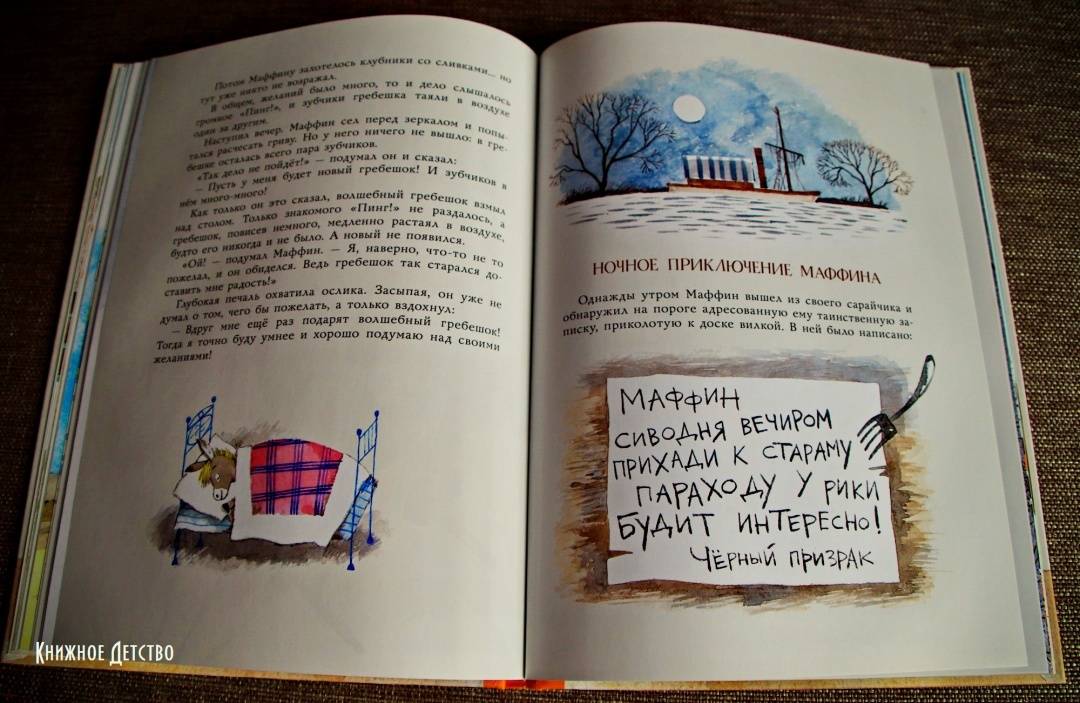 Потом Маффину захотелось клубники со сливками... но
тут уже никто не возражал.
В общем, желаний было много, то и дело слышалось
громкое «Пинг!», и зубчики гребешка таяли в воздухе
один за другим.
Наступил вечер. Маффин сел перед зеркалом и попы-
тался расчесать гриву. Но у него ничего не вышло: в гре-
бешке осталась всего пара зубчиков.
«Так дело не пойдёт!» — подумал он и сказал:
— Пусть у меня будет новый гребешок! И зубчиков в
нём много-много!
Как только он это сказал, волшебный гребешок взмыл
над столом. Только знакомого «Пинг!» не раздалось, а
гребешок, повисев немного, медленно растаял в воздухе,
будто его никогда и не было. А новый не появился.
«Ой! — подумал Маффин. — Я, наверно, что-то не то
пожелал, и он обиделся. Ведь гребешок так старался до-
ставить мне радость!»
Глубокая печаль охватила ослика. Засыпая, он уже не
думал о том, чего бы пожелать, а только вздохнул:
— Вдруг мне ещё раз подарят волшебный гребешок!
Тогда я точно буду умнее и хорошо подумаю над своими
желаниями!
НОЧНОЕ ПРИКЛЮЧЕНИЕ МАФФИНА
Однажды утром Маффин вышел из своего сарайчика и
обнаружил на пороге адресованную ему таинственную за-
писку, приколотую к доске вилкой. В ней было написано:
МАФФИН
СИВОДНЯ ВЕЧИРОМ
ПРИХАДИ К СТАРАМУ
ПАРАХОДУ У РИКИ
БУДИТ ИНТЕРЕСНО!
ЧЁРНЫЙ ПРИЗРАК
Книжное Детство